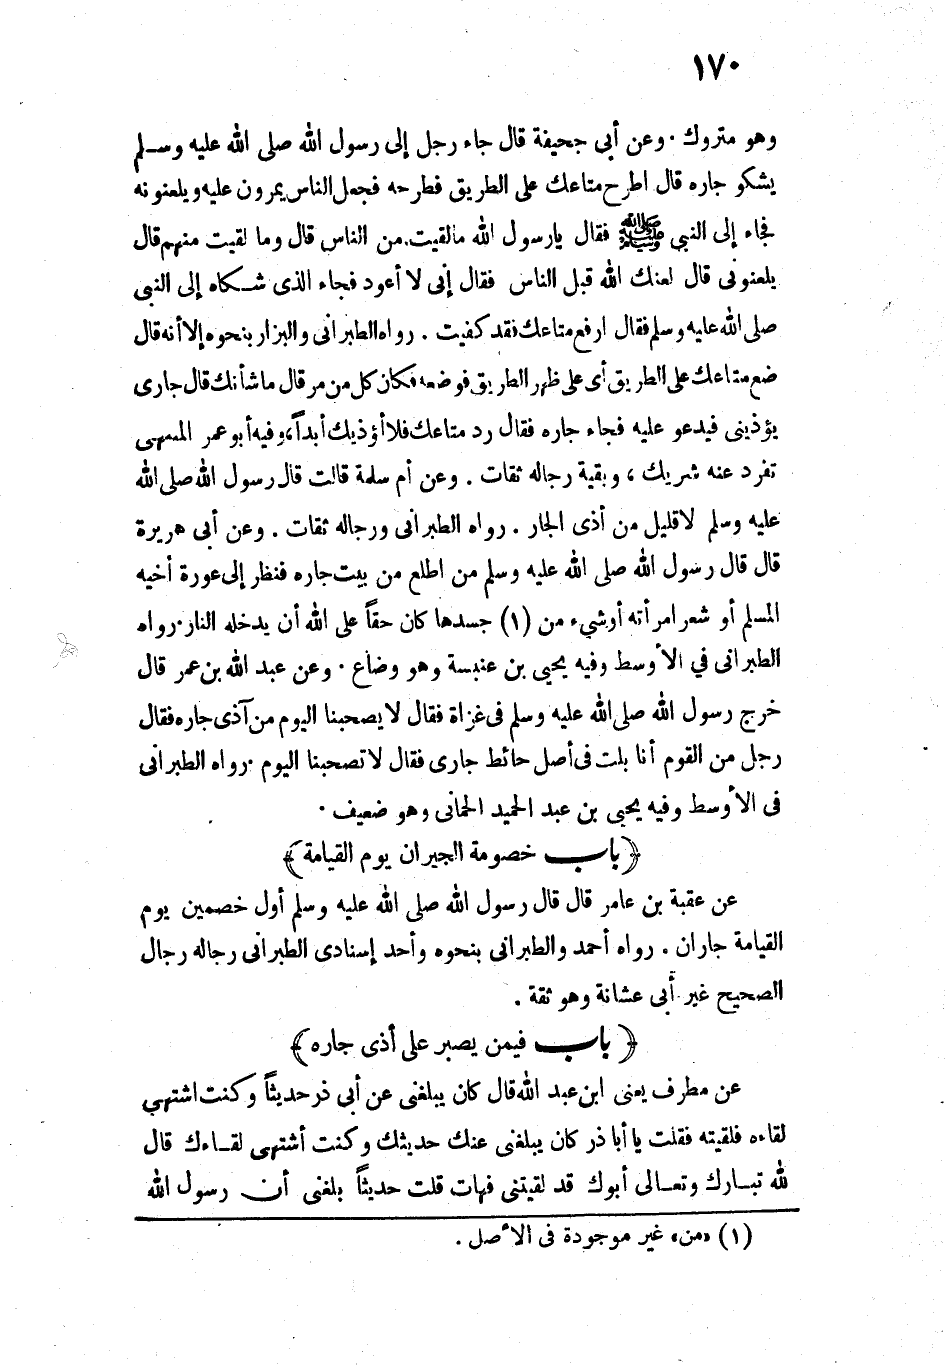 ١٧٠
وهو متروك . وعن أبي جحيفة قال جاء رجل إلى رسول الله صلى الله عليه وسلم
يشكو جاره قال اطرح متاعك على الطريق فطرحه فجعل الناس يمرون عليه ويلعنونه
فجاء إلى النبي ﷺ فقال يارسول الله مالقيت من الناس قال وما لقيت منهم قال
يلعنونى قال لعنك الله قبل الناس فقال إنى لا أعود فجاء الذى شكاه إلى النبى
صلى الله عليه وسلم فقال ارفع متاعك فقد كفيت . رواه الطبرانى والبزار بنحوه إلا أنه قال
ضع متاعك على الطريق أى على ظهر الطريق فوضعه فكان كل من مر قال ماشأنك قال جارى
يؤذينى فيدعو عليه فجاء جاره فقال رد متاعك فلا أؤذيك أبداً، وفيه أبو عمر المنبهى
تفرد عنه شريك ، وبقية رجاله ثقات . وعن أم سلمة قالت قال رسول الله صلى الله
عليه وسلم لا قليل من أذى الجار . رواه الطبرانى ورجاله ثقات . وعن أبى هريرة
قال قال رسول الله صلى الله عليه وسلم من اطلع من بيت جاره فنظر إلى عورة أخيه
المسلم أو شعر امرأته أو شيء من (١) جسدها كان حقاً على الله أن يدخله النار . رواه
الطبرانى في الأوسط وفيه يحيى بن عنبسة وهو وضاع . وعن عبد الله بن عمر قال
خرج رسول الله صلى الله عليه وسلم فى غزاة فقال لا يصحبنا اليوم من آذى جاره فقال
رجل من القوم أنا بلت فى أصل حائط جارى فقال لا تصحبنا اليوم . رواه الطبرانى
فى الأوسط وفيه يحيى بن عبد الحميد الحمانى وهو ضعيف .
﴿ باب خصومة الجيران يوم القيامة ﴾
عن عقبة بن عامر قال قال رسول الله صلى الله عليه وسلم أول خصمين يوم
القيامة جاران . رواه أحمد والطبرانى بنحوه وأحد إسنادى الطبرانى رجاله رجال
الصحيح غير أبى عشانة وهو ثقة .
﴿ باب فيمن يصبر على أذى جاره ﴾
عن مطرف يعنى ابن عبد الله قال كان يبلغنى عن أبى ذر حديثاً وكنت اشتهي
لقاءه فلقيته فقلت يا أبا ذر كان يبلغنى عنك حديثك وكنت أشتهى لقاءك قال
لله تبارك وتعالى أبوك قد لقيتنى فهات قلت حديثاً بلغنى أن رسول الله
(١) «من» غير موجودة فى الأصل .